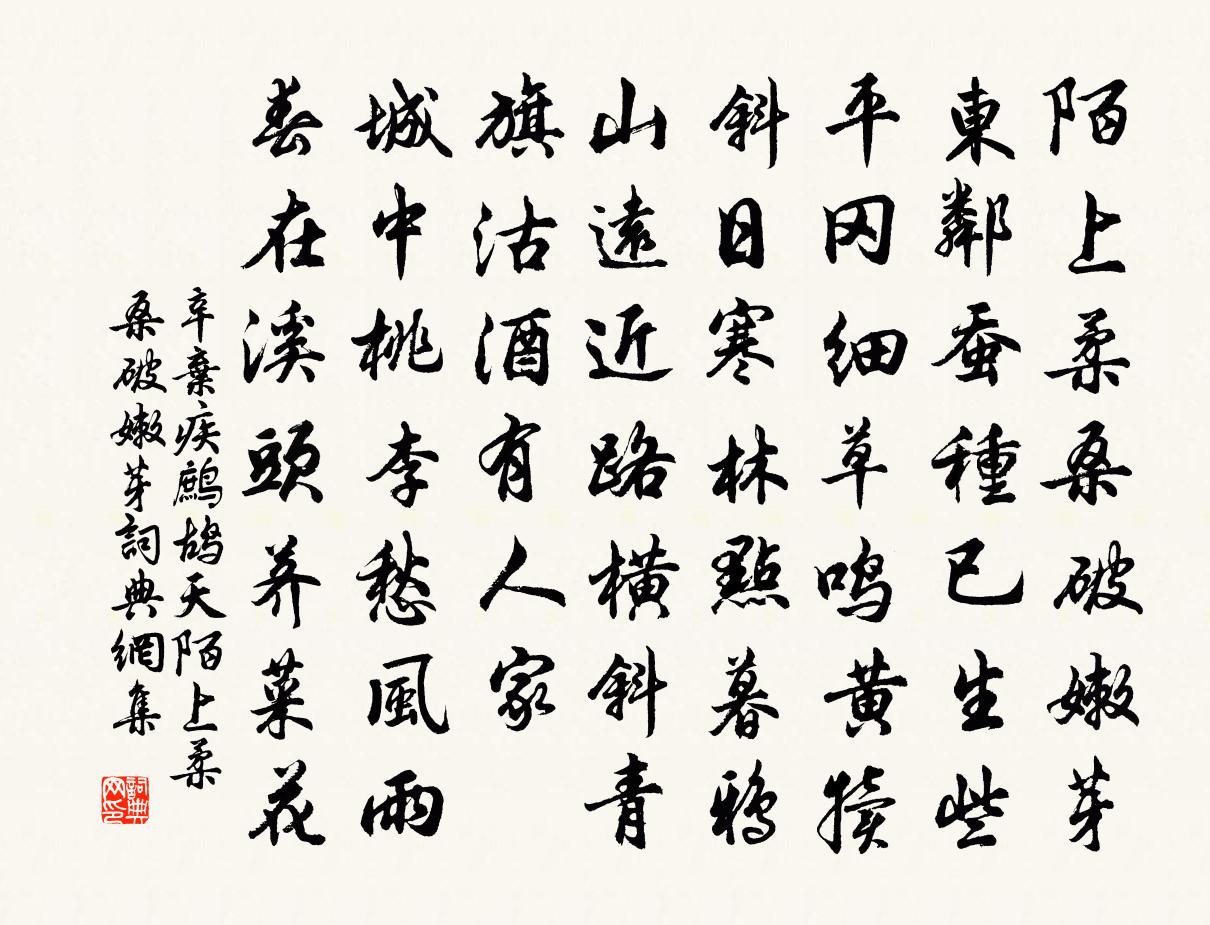 陌上柔桑破嫩芽
東鄰蚕種已生些
平冈细草鸣黄犊
斜日寒林點暮鸦
山遠近路横斜青
旗沽酒有人家
城中桃李愁風雨
春在溪頭荠菜花
辛棄疾鷓鸪天陌上柔
桑破嫩芽詞典網集
詞典
网印